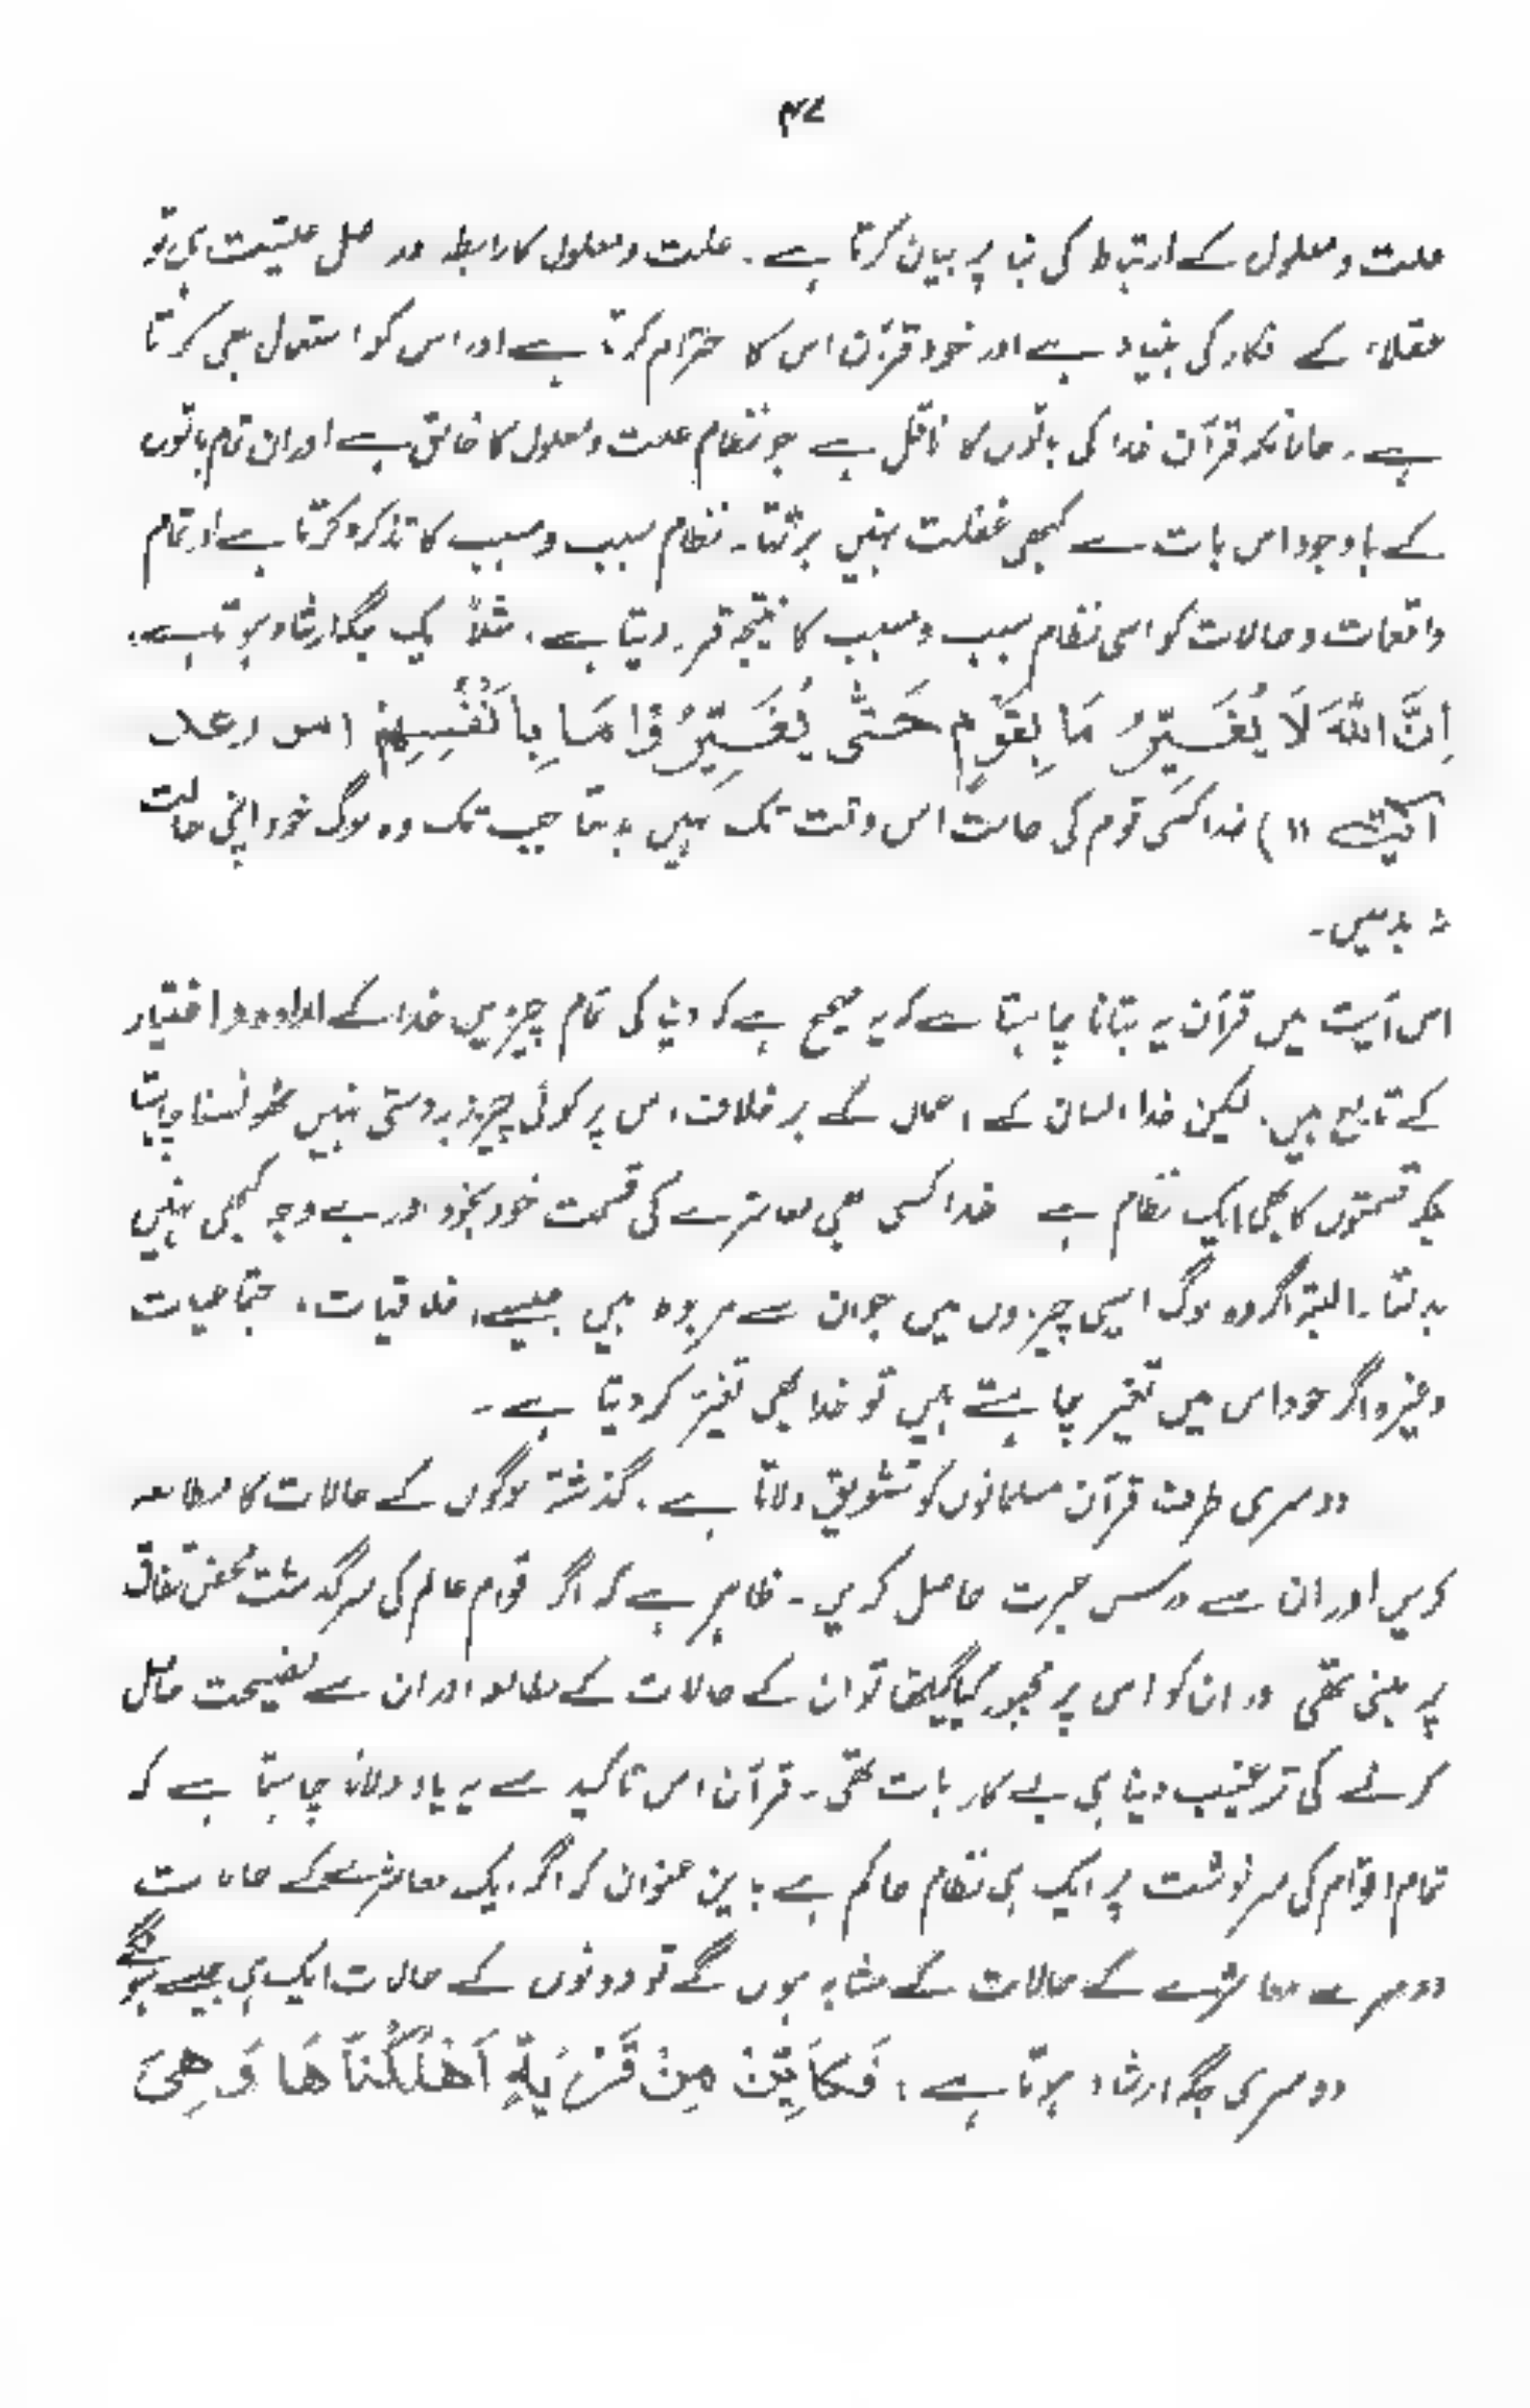 ۴۷
علت و معلول کے ارتباط کی بنا پر بیان کرتا ہے۔ علت و معلول کا رابطہ در اصل علیّت ہی تو
عقلاء کے افکار کی بنیاد ہے اور خود قرآن اس کا احترام کرتا ہے اور اس کو استعمال بھی کرتا
ہے۔ حالانکہ قرآن خدا کی باتوں کا ناقل ہے جو نظام علت و معلول کا خالق ہے اور ان تمام باتوں
کے باوجود اس بات سے کبھی غفلت نہیں برتتا۔ نظام سبب و مسبب کا تذکرہ کرتا ہے اور تمام
واقعات و حالات کو اسی نظام سبب و مسبب کا نتیجہ قرار دیتا ہے۔ مثلاً ایک جگہ ارشاد ہوتا ہے:
اِنَّ اللّٰهَ لَا یُغَیِّرُ مَا بِقَوْمٍ حَتّٰی یُغَیِّرُوْا مَا بِاَنْفُسِهِمْ (س رعد
آیت ۱۱) خدا کسی قوم کی حالت اس وقت تک نہیں بدلتا جب تک وہ لوگ خود اپنی حالت
نہ بدلیں۔
اس آیت میں قرآن یہ بتانا چاہتا ہے کہ یہ صحیح ہے کہ دنیا کی تمام چیزیں خدا کے ارادہ و اختیار
کے تابع ہیں۔ لیکن خدا انسان کے اعمال کے برخلاف اس پر کوئی چیز زبردستی نہیں ٹھونسنا چاہتا
بلکہ قسمتوں کا بھی ایک نظام ہے خدا کسی بھی معاشرے کی قسمت خود بخود اور بے وجہ کبھی نہیں
بدلتا۔ البتہ اگر وہ لوگ ایسی چیزوں میں جو ان سے مربوط ہیں جیسے اخلاقیات، اجتماعیات
وغیرہ اگر خود اس میں تغیر چاہتے ہیں تو خدا بھی تغیر کر دیتا ہے۔
دوسری طرف قرآن مسلمانوں کو تشویق دلاتا ہے۔ گذشتہ لوگوں کے حالات کا مطالعہ
کریں اور ان سے درس عبرت حاصل کریں۔ ظاہر ہے کہ اگر اقوام عالم کی سرگذشت محض اتفاق
پر مبنی تھی اور ان کو اس پر مجبور کیا گیا تھا تو ان کے حالات کے مطالعہ اور ان سے نصیحت حاصل
کرنے کی ترغیب دینا ہی بے کار بات تھی۔ قرآن اس تاکید سے یہ یاد دلانا چاہتا ہے کہ
تمام اقوام کی سرنوشت پر ایک ہی نظام حاکم ہے باین عنوان کہ اگر ایک معاشرے کے حالات
دوسرے معاشرے کے حالات کے مشابہ ہوں گے تو دونوں کے حالات ایک ہی جیسے ہونگے
دوسری جگہ ارشاد ہوتا ہے: فَکَاَیِّنْ مِنْ قَرْیَةٍ اَهْلَکْنَاهَا وَهِیَ